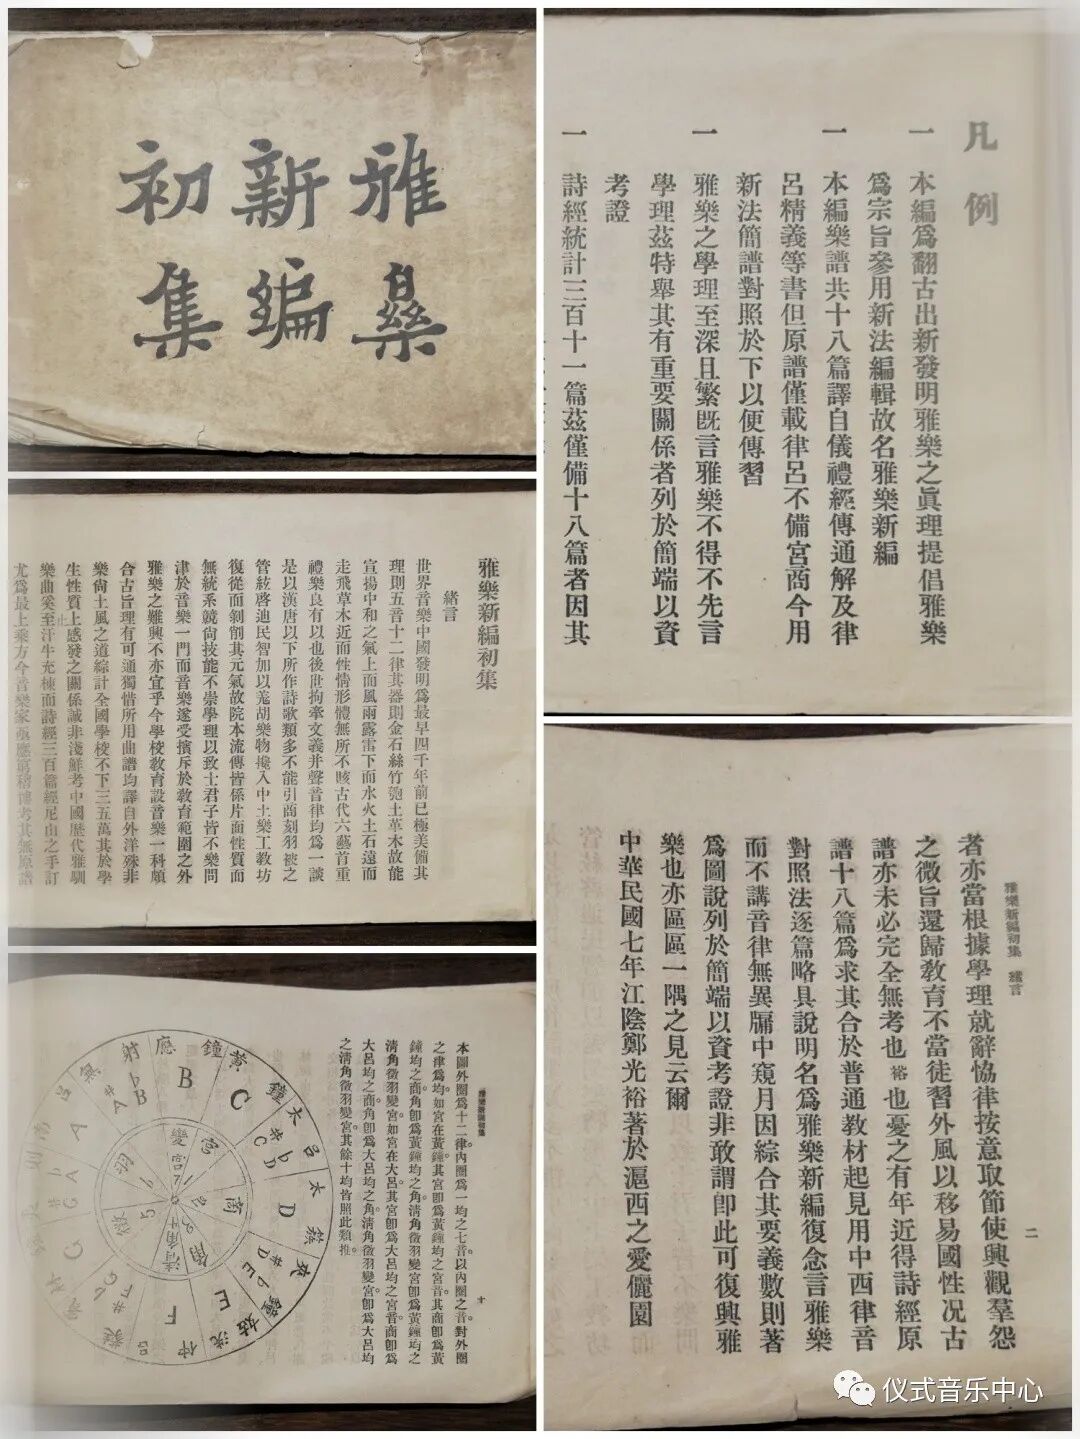 雅樂
新編
初集
凡例
一 本編爲翻古出新發明雅樂之眞理提倡雅樂
爲宗旨參用新法編輯故名雅樂新編
一 本編樂譜共十八篇譯自儀禮經傳通解及律
呂精義等書但原譜僅載律呂不備宮商今用
新法簡譜對照於下以便傳習
一 雅樂之學理至深且繁既言雅樂不得不先言
學理茲特舉其有重要關係者列於簡端以資
考證
一 詩經統計三百十一篇茲僅備十八篇者因其
雅樂新編初集
緒言
世界音樂中國發明爲最早四千年前已極美備其
理則五音十二律其器則金石絲竹匏土革木故能
宣揚中和之氣上而風雨露雷下而水火土石遠而
走飛草木近而性情形體無所不賅古代六藝首重
禮樂良有以也後世拘牽文義并聲音律均爲一談
是以漢唐以下所作詩歌類多不能引商刻羽被之
管絃啓迪民智加以羌胡樂物攙入中土樂工教坊
復從而剝削其元氣故院本流傳皆係片面性質而
無統系競尙技能不崇學理以致士君子皆不樂問
津於音樂一門而音樂遂受擯斥於教育範圍之外
雅樂之難興不亦宜乎今學校教育設音樂一科頗
合古旨理有可通獨惜所用曲譜均譯自外洋殊非
樂尙土風之道綜計全國學校不下三五萬其於學
生性質上感發之關係誠非淺鮮考中國歷代雅馴
樂曲奚至汗牛充棟而詩經三百篇經尼山之手訂
尤爲最上乘方今音樂家亟應窮稽博考其無原譜
雅樂新編初集 緒言
二
者亦當根據學理就辭協律按意取節使興觀羣怨
之微旨還歸教育不當徒習外風以移易國性况古
譜亦未必完全無考也裕也憂之有年近得詩經原
譜十八篇爲求其合於普通教材起見用中西律音
對照法逐篇略具說明名爲雅樂新編復念言雅樂
而不講音律無異牖中窺月因綜合其要義數則著
爲圖說列於簡端以資考證非敢謂卽此可復興雅
樂也亦區區一隅之見云爾
中華民國七年江陰鄭光裕著於滬西之愛儷園
雅樂新編初集
十
本圖外圈爲十二律內圈爲一均之七音以內圈之音對外圈
之律爲均如宮在黃鐘其宮卽爲黃鐘均之宮音其商卽爲黃
鐘均之商角卽爲黃鐘均之角清角徵羽變宮卽爲黃鐘均之
清角徵羽變宮如宮在大呂其宮卽爲大呂均之宮音商卽爲
大呂均之商角卽爲大呂均之角清角徵羽變宮卽爲大呂均
之清角徵羽變宮其餘十均皆照此類推
黃鐘 C
大呂 #C bD
太簇 D
夾鐘 #D bE
姑洗 E
仲呂 F
#F bG
G
#G bA
A
無射 #A bB
應鐘 B
宮
商
角
清角
徵 5
羽 6
變宮
仪式音乐中心